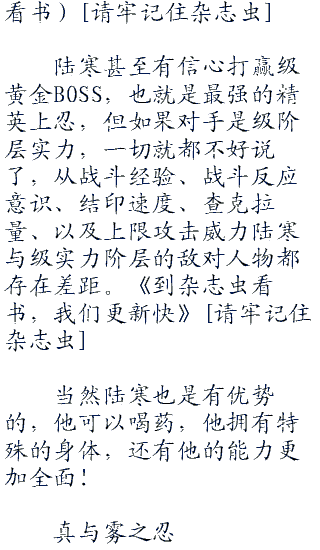 看书）[请牢记住杂志虫]
陆寒甚至有信心打赢级
黄金BOSS，也就是最强的精
英上忍，但如果对手是级阶
层实力，一切就都不好说
了，从战斗经验、战斗反应
意识、结印速度、查克拉
量、以及上限攻击威力陆寒
与级实力阶层的敌对人物都
存在差距。《到杂志虫看
书，我们更新快》[请牢记住
杂志虫]
当然陆寒也是有优势
的，他可以喝药，他拥有特
殊的身体，还有他的能力更
加全面！
真与雾之忍